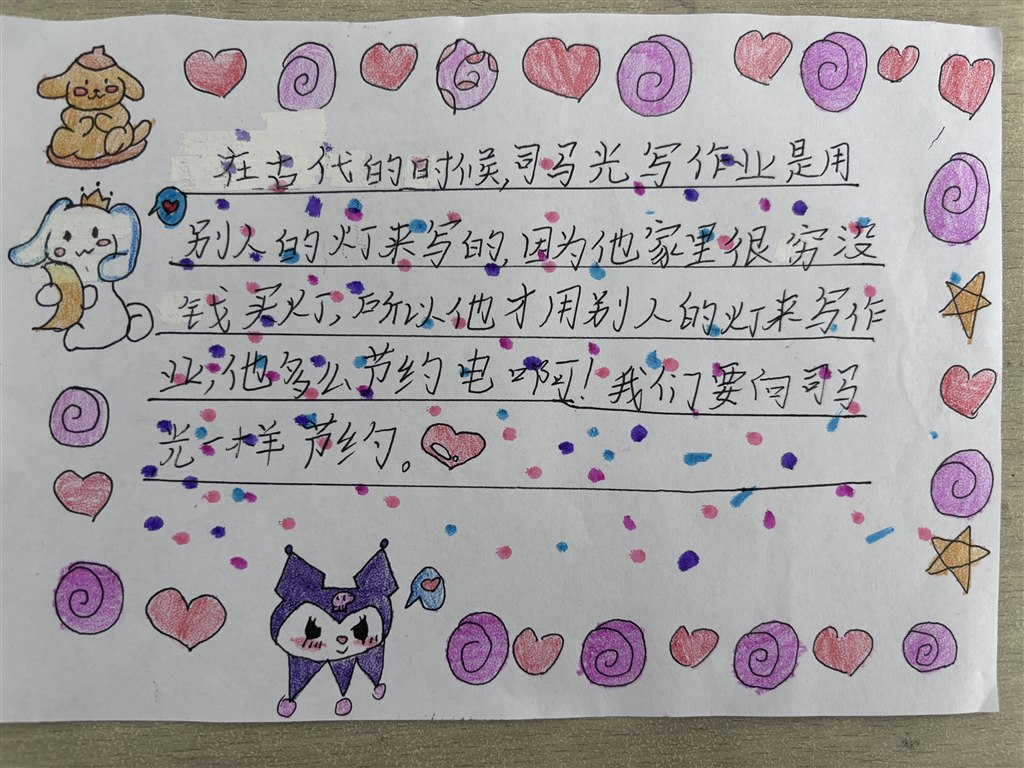 在古代的时候,司马光写作业是用
别人的灯来写的,因为他家里很穷没
钱买灯,所以他才用别人的灯来写作
业,他多么节约电啊!我们要向司马
光一样节约。